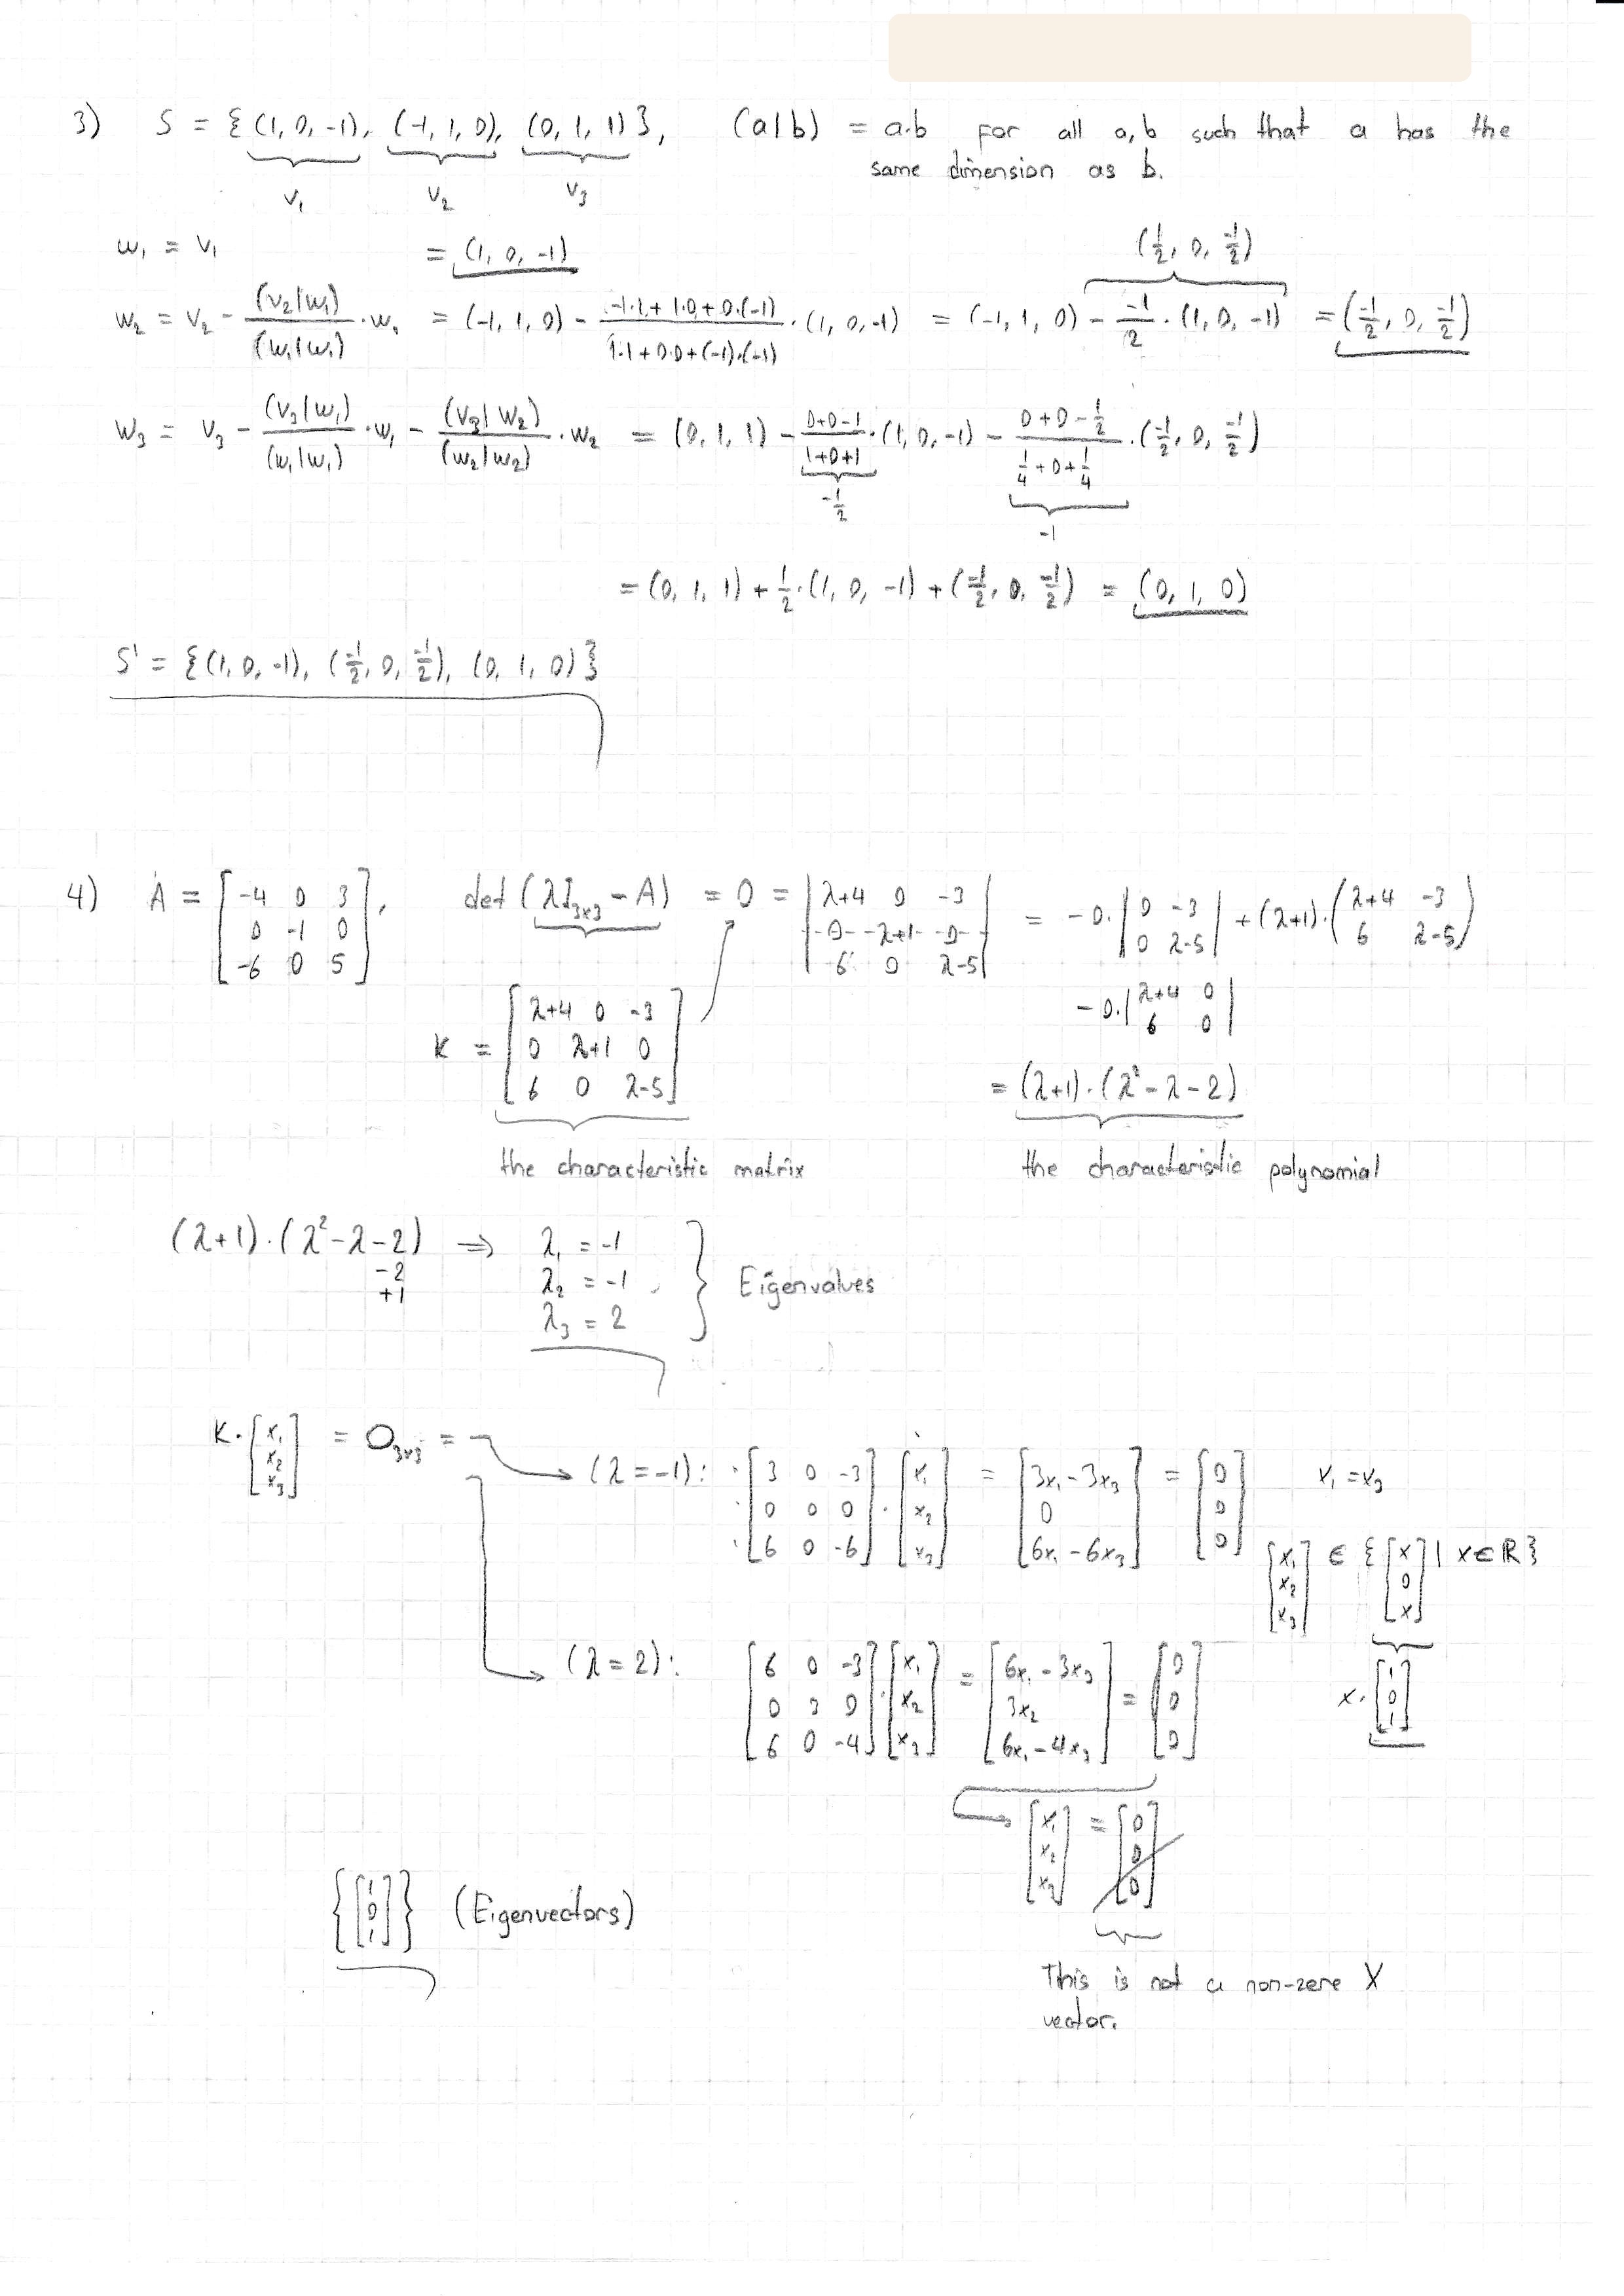 3) S = {(1, 0, -1), (-1, 1, 0), (0, 1, 1)}, (a|b) = a·b for all a, b such that a has the
same dimension as b.
v₁ v₂ v₃
(1/2, 0, -1/2)
w₁ = v₁ = (1, 0, -1)
w₂ = v₂ - (v₂|w₁)/(w₁|w₁) · w₁ = (-1, 1, 0) - (-1·1 + 1·0 + 0·(-1))/(1·1 + 0·0 + (-1)·(-1)) · (1, 0, -1) = (-1, 1, 0) - -1/2 · (1, 0, -1) = (-1/2, 0, -1/2)
w₃ = v₃ - (v₃|w₁)/(w₁|w₁) · w₁ - (v₃|w₂)/(w₂|w₂) · w₂ = (0, 1, 1) - (0+0-1)/(1+0+1) · (1, 0, -1) - (0+0-1/2)/(1/4+0+1/4) · (-1/2, 0, -1/2)
-1/2 -1
= (0, 1, 1) + 1/2 · (1, 0, -1) + (-1/2, 0, -1/2) = (0, 1, 0)
S' = {(1, 0, -1), (-1/2, 0, -1/2), (0, 1, 0)}
4) A = [-4 0 3; 0 -1 0; -6 0 5], det(λI₃ₓ₃ - A) = 0 = |λ+4 0 -3; 0 λ+1 0; 6 0 λ-5| = -0·|0 -3; 0 λ-5| + (λ+1)·(λ+4 -3; 6 λ-5)
-0·|λ+4 0; 6 0|
K = [λ+4 0 -3; 0 λ+1 0; 6 0 λ-5]
= (λ+1)·(λ²-λ-2)
the characteristic matrix the characteristic polynomial
(λ+1)·(λ²-λ-2) ⇒ λ₁ = -1
-2
+1
λ₂ = -1 Eigenvalues
λ₃ = 2
K·[x₁; x₂; x₃] = O₃ₓ₃ = → (λ=-1): [3 0 -3; 0 0 0; 6 0 -6]·[x₁; x₂; x₃] = [3x₁-3x₃; 0; 6x₁-6x₃] = [0; 0; 0] x₁ = x₃
[x₁; x₂; x₃] ∈ {[x; 0; x] | x∈ℝ}
x·[1; 0; 1]
→ (λ=2): [6 0 -3; 0 3 0; 6 0 -4]·[x₁; x₂; x₃] = [6x₁-3x₃; 3x₂; 6x₁-4x₃] = [0; 0; 0]
→ [x₁; x₂; x₃] = [0; 0; 0]
{[1; 0; 1]} (Eigenvectors)
This is not a non-zero X
vector.